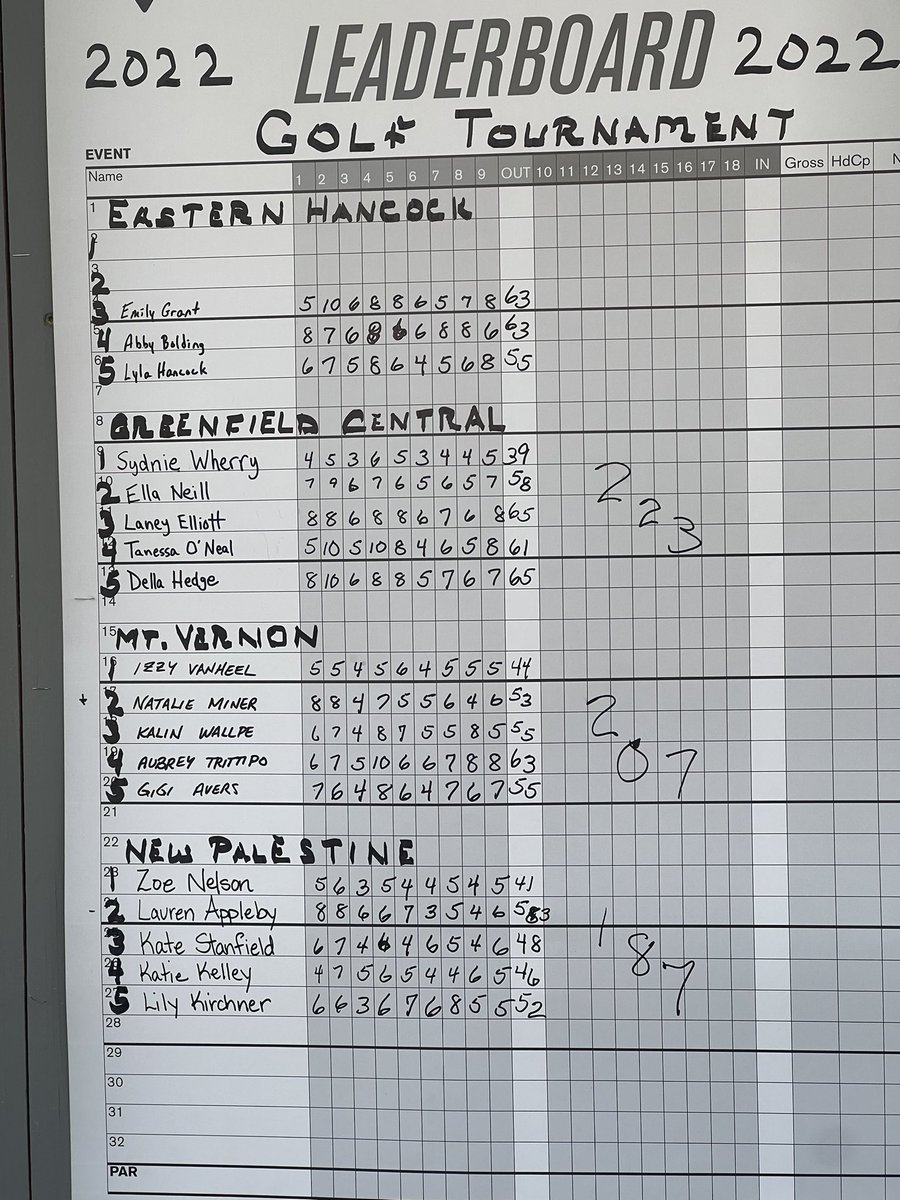 2022 LEADERBOARD 2022
GOLF TOURNAMENT
EVENT
Name 1 2 3 4 5 6 7 8 9 OUT 10 11 12 13 14 15 16 17 18 IN Gross HdCp N
1 EASTERN HANCOCK
1
3
2
3 Emily Grant 5 10 6 8 8 6 5 7 8 63
4 Abby Bolding 8 7 6 8 6 6 8 8 6 63
5 Lyla Hancock 6 7 5 8 6 4 5 6 8 55
7
8 GREENFIELD CENTRAL
1 Sydnie Wherry 4 5 3 6 5 3 4 4 5 39
2 Ella Neill 7 9 6 7 6 5 6 5 7 58
3 Laney Elliott 8 8 6 8 8 6 7 6 8 65
4 Tanessa O'Neal 5 10 5 10 8 4 6 5 8 61
5 Della Hedge 8 10 6 8 8 5 7 6 7 65
223
14
15 MT. VERNON
1 IZZY VANHEEL 5 5 4 5 6 4 5 5 5 44
2 NATALIE MINER 8 8 4 7 5 5 6 4 6 53
3 KALIN WALLPE 6 7 4 8 7 5 5 8 5 55
4 AUBREY TRITTIPO 6 7 5 10 6 6 7 8 8 63
5 GIGI AVERS 7 6 4 8 6 4 7 6 7 55
207
21
22 NEW PALESTINE
1 Zoe Nelson 5 6 3 5 4 4 5 4 5 41
2 Lauren Appleby 8 8 6 6 7 3 5 4 6 53
3 Kate Stanfield 6 7 4 6 4 6 5 4 6 48
4 Katie Kelley 4 7 5 6 5 4 4 6 5 46
5 Lily Kirchner 6 6 3 6 7 6 8 5 5 52
187
28
29
30
31
32
PAR